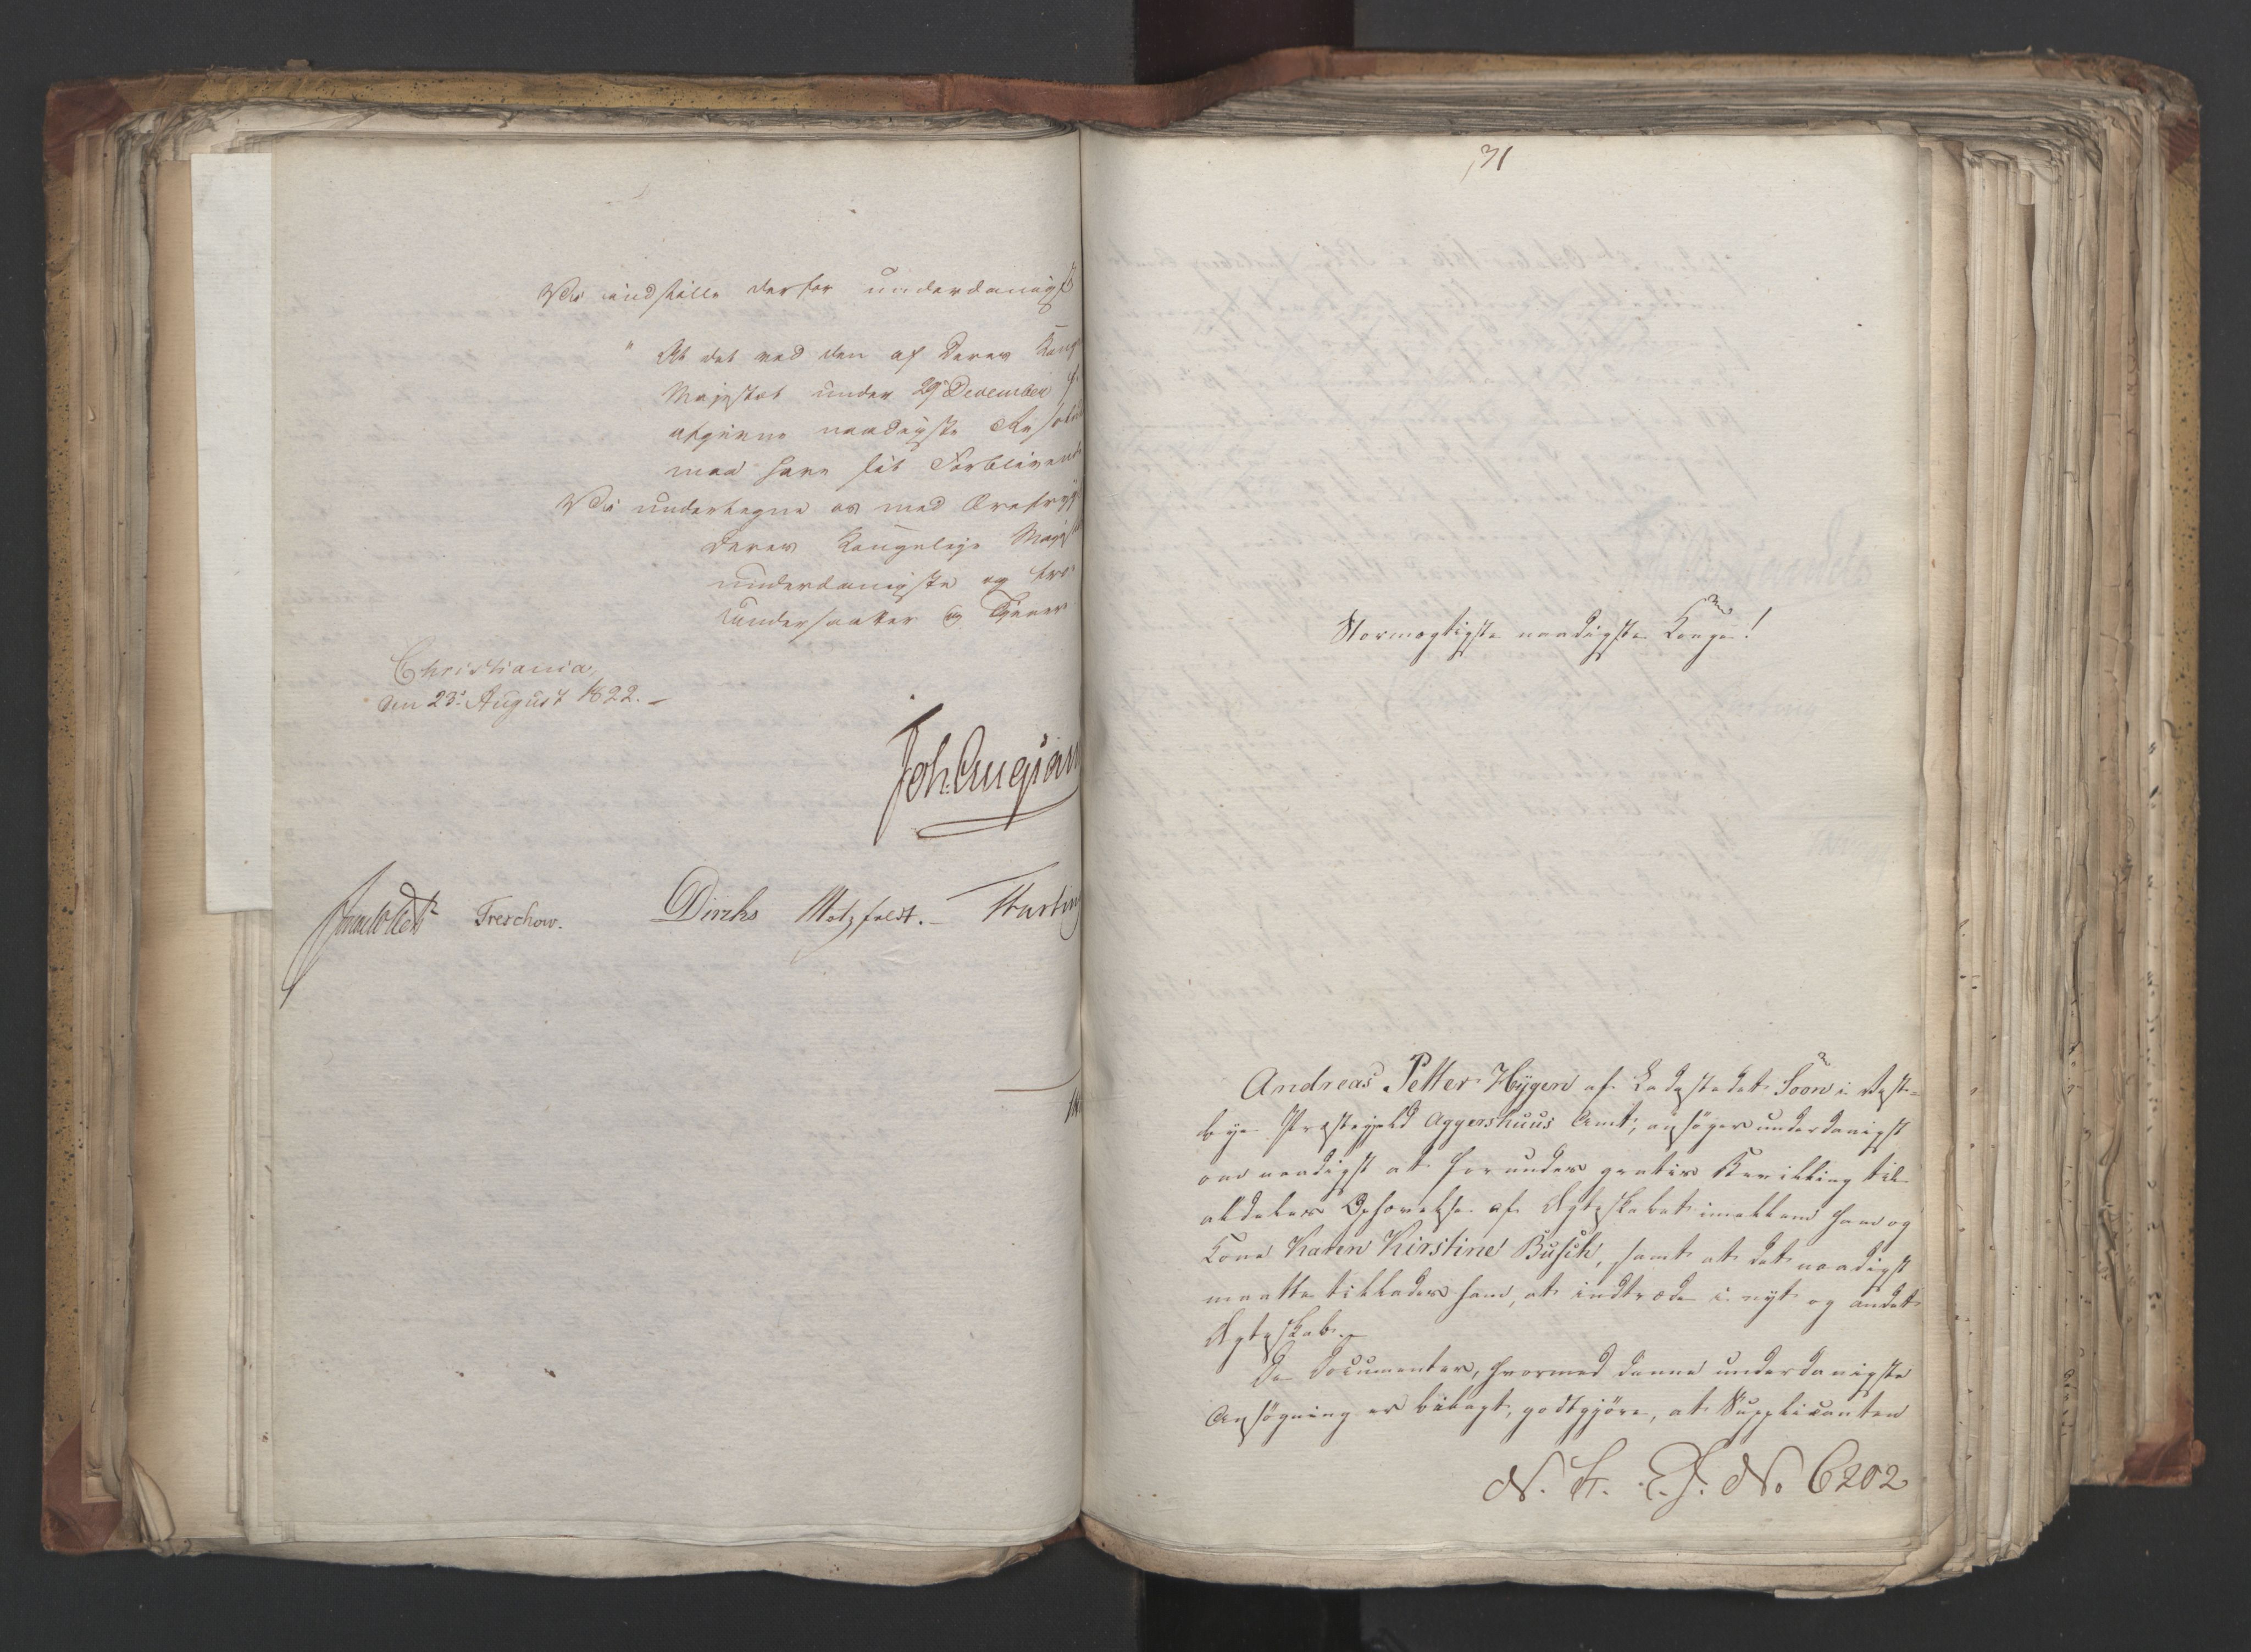 Vi indstille derfor underdanigst
" At det ved den af Deres Kong
Majestæt under 29 December f.
afgivne naadigste Resolu
maa have sit Forblivende
Vi undertegne os med Ærefrygt
Deres Kongelige Maje
underdanigste og tro
Undersaatter og Tjener
Christiania,
den 23 August 1822. –
Joh. Aug: San
Treschow.
Diriks
Motzfeldt. –
31
Stormægtigste naadigste Konge!
Andreas Petter Hygen af Ladestedet Soon i Vest=
bye Præstegjeld Aggershuus Amt, ansøger underdanigst
om naadigst at forundes gratis Bevilling til
aldeles Ophævelse af Ægteskabet imellem ham og
Kone Karen Kirstine Busch, samt at det naadigst
maatte tillades ham, at indtræde i nyt og andet
Ægteskab. –
De Documenter, hvormed denne underdanigste
Ansøgning er bilagt, godtgjøre, at Supplicanten
No 6202